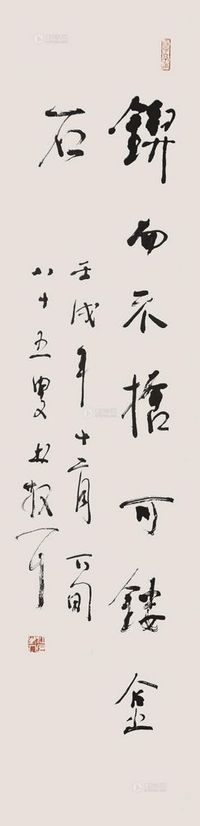 鍥而不捨可鏤金
石
壬戌年十二月下旬
八十五叟林散耳